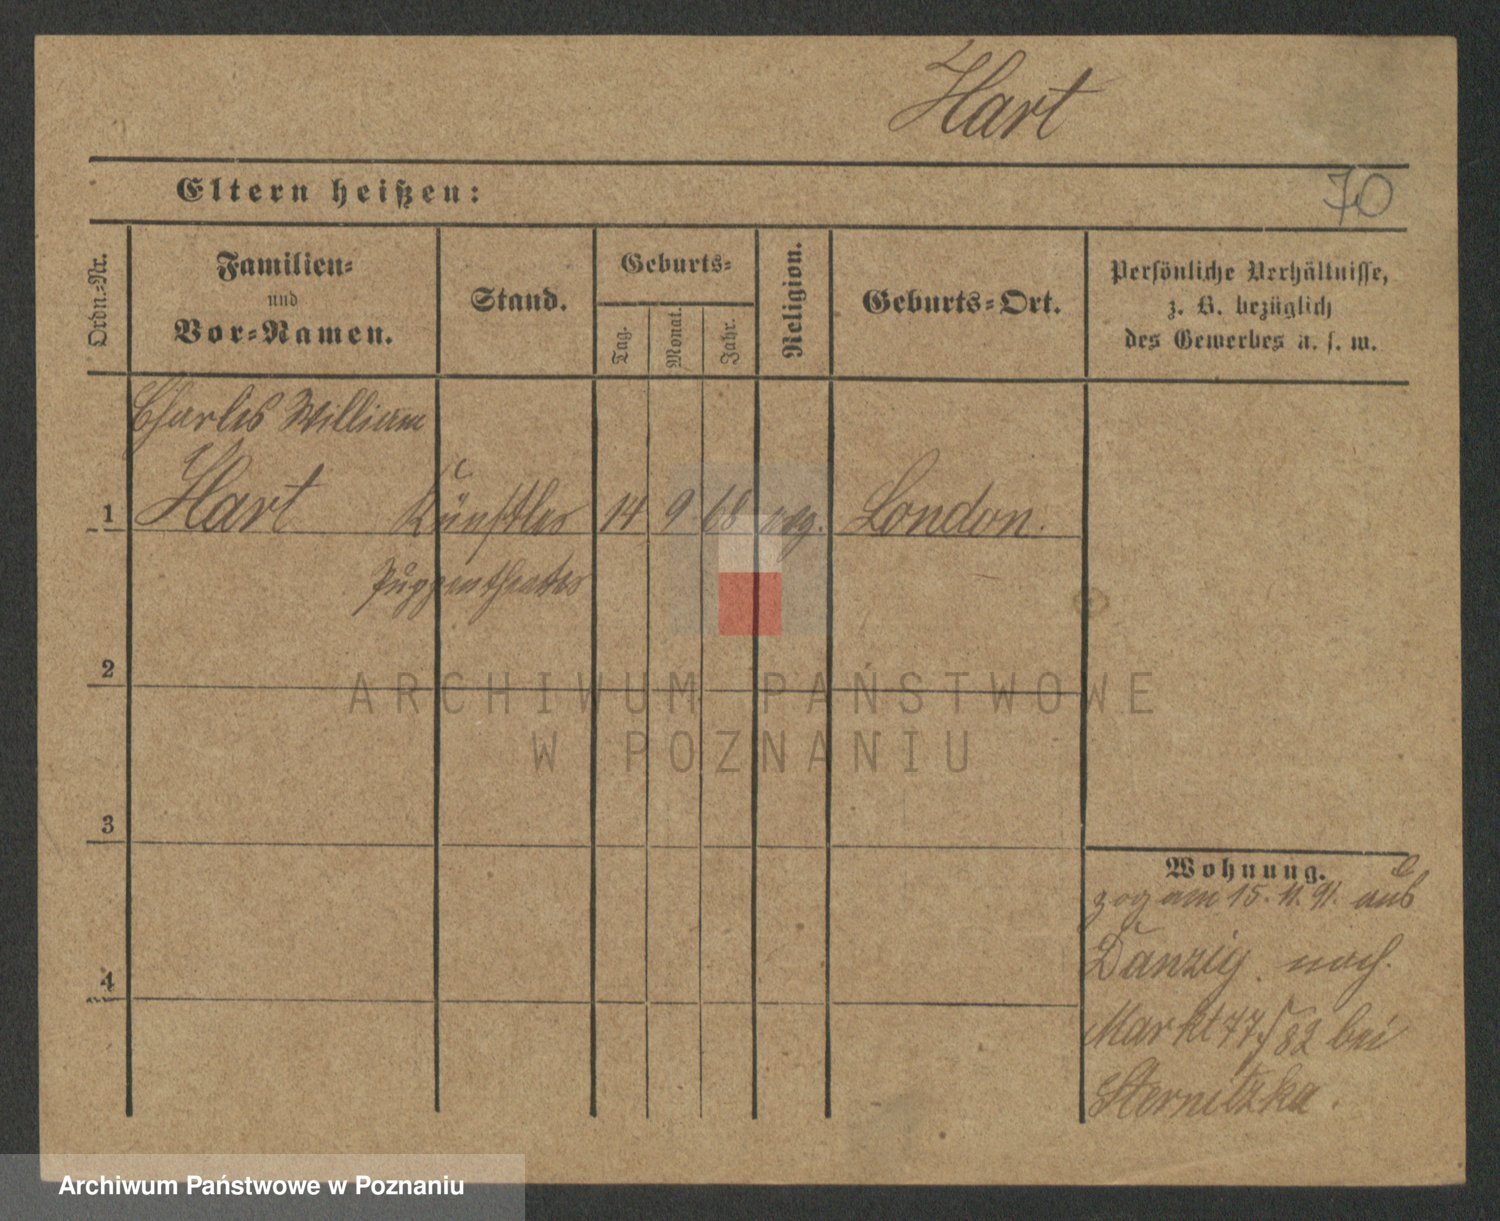 Hart
Eltern heißen:
70
Ordn.-Nr.
Familien-
und
Vor-Namen.
Stand.
Geburts-
Tag.
Monat.
Jahr.
Religion.
Geburts-Ort.
Persönliche Verhältnisse,
z. B. bezüglich
des Gewerbes u. s. w.
Charles William
1 Hart Künstler 14 9. 68 London.
Puppentheater
2
3
4
Wohnung.
zog am 15. 11. 91. aus
Danzig nach
Markt 77/82 bei
Sternitzka.
ARCHIWUM PAŃSTWOWE
W POZNANIU
Archiwum Państwowe w Poznaniu